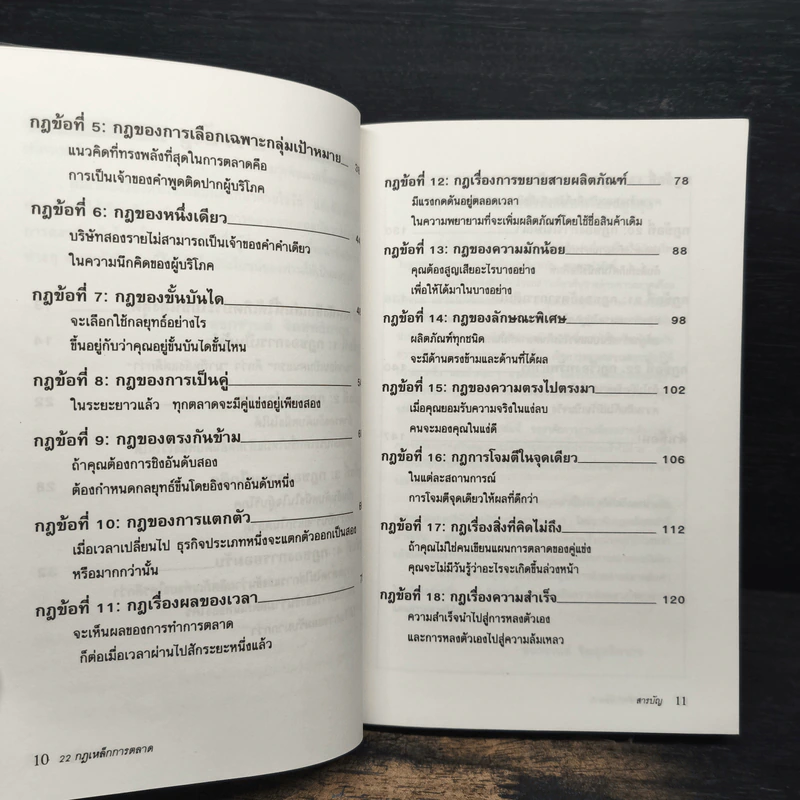 กฎข้อที่ 5: กฎของการเลือกเฉพาะกลุ่มเป้าหมาย
แนวคิดที่ทรงพลังที่สุดในการตลาดคือ
การเป็นเจ้าของคำพูดติดปากผู้บริโภค
กฎข้อที่ 6: กฎของหนึ่งเดียว
บริษัทสองรายไม่สามารถเป็นเจ้าของคำคำเดียว
ในความนึกคิดของผู้บริโภค
กฎข้อที่ 7: กฎของขั้นบันได
จะเลือกใช้กลยุทธ์อย่างไร
ขึ้นอยู่กับว่าคุณอยู่ขั้นบันไดขั้นไหน
กฎข้อที่ 8: กฎของการเป็นคู่
ในระยะยาวแล้ว ทุกตลาดจะมีคู่แข่งอยู่เพียงสอง
กฎข้อที่ 9: กฎของตรงกันข้าม
ถ้าคุณต้องการชิงอันดับสอง
ต้องกำหนดกลยุทธ์ขึ้นโดยอิงจากอันดับหนึ่ง
กฎข้อที่ 10: กฎของการแตกตัว
เมื่อเวลาเปลี่ยนไป ธุรกิจประเภทหนึ่งจะแตกตัวออกเป็นสอง
หรือมากกว่านั้น
กฎข้อที่ 11: กฎเรื่องผลของเวลา
จะเห็นผลของการทำการตลาด
ก็ต่อเมื่อเวลาผ่านไปสักระยะหนึ่งแล้ว
10 22 กฎเหล็กการตลาด
กฎข้อที่ 12: กฎเรื่องการขยายสายผลิตภัณฑ์ 78
มีแรงกดดันอยู่ตลอดเวลา
ในความพยายามที่จะเพิ่มผลิตภัณฑ์โดยใช้ชื่อสินค้าเดิม
กฎข้อที่ 13: กฎของความมักน้อย 88
คุณต้องสูญเสียอะไรบางอย่าง
เพื่อให้ได้มาในบางอย่าง
กฎข้อที่ 14: กฎของลักษณะพิเศษ 98
ผลิตภัณฑ์ทุกชนิด
จะมีด้านตรงข้ามและด้านที่ได้ผล
กฎข้อที่ 15: กฎของความตรงไปตรงมา 102
เมื่อคุณยอมรับความจริงในแง่ลบ
คนจะมองคุณในแง่ดี
กฎข้อที่ 16: กฎการโจมตีในจุดเดียว 106
ในแต่ละสถานการณ์
การโจมตีจุดเดียวให้ผลที่ดีกว่า
กฎข้อที่ 17: กฎเรื่องสิ่งที่คิดไม่ถึง 112
ถ้าคุณไม่ใช่คนเขียนแผนการตลาดของคู่แข่ง
คุณจะไม่มีวันรู้ว่าอะไรจะเกิดขึ้นล่วงหน้า
กฎข้อที่ 18: กฎเรื่องความสำเร็จ 120
ความสำเร็จนำไปสู่การหลงตัวเอง
และการหลงตัวเองไปสู่ความล้มเหลว
สารบัญ 11